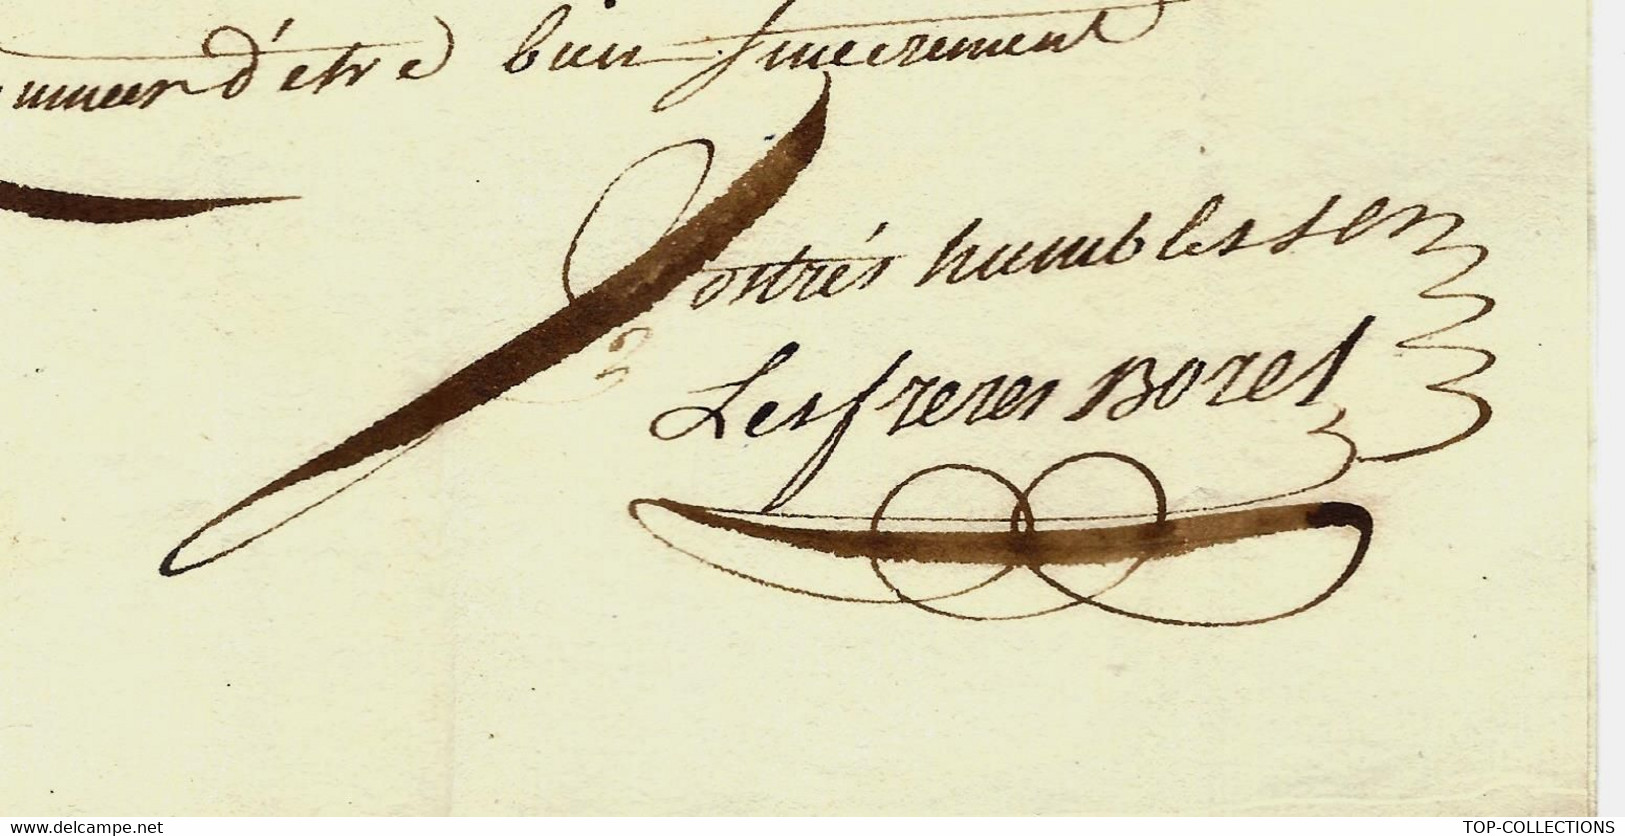 d'etre bien sincerement
Vos trés humbles ser
Les freres Borel
www.delcampe.net
TOP-COLLECTIONS